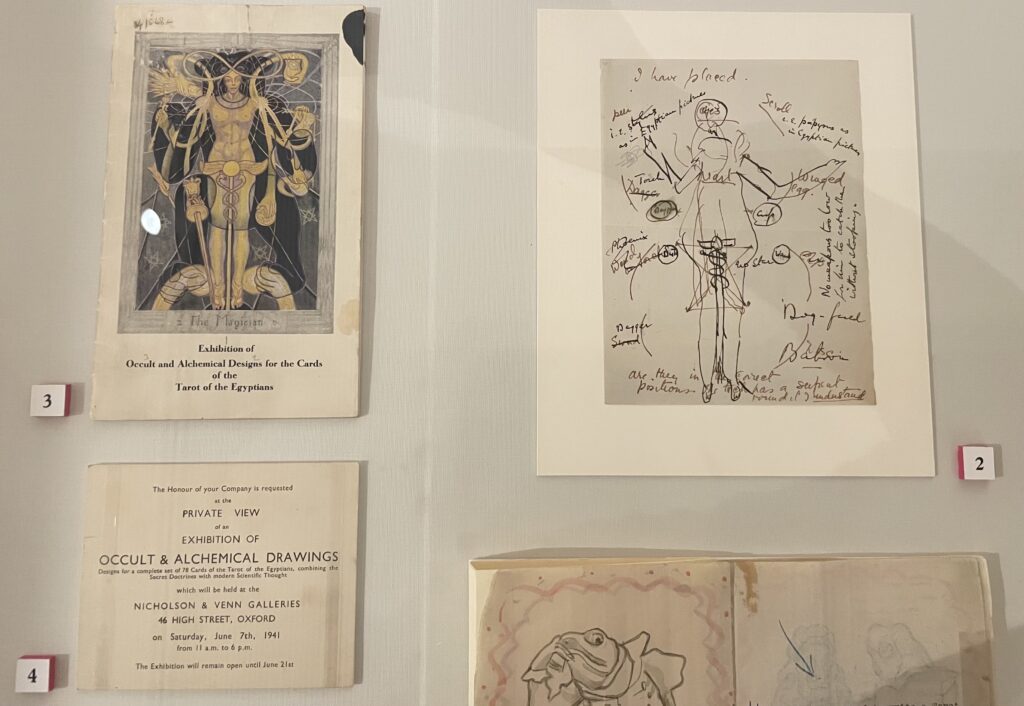 2 The Magician
Exhibition of
Occult and Alchemical Designs for the Cards
of the
Tarot of the Egyptians
3
The Honour of your Company is requested
at the
PRIVATE VIEW
of an
EXHIBITION OF
OCCULT & ALCHEMICAL DRAWINGS
Designs for a complete set of 78 Cards of the Tarot of the Egyptians, combining the
Sacred Doctrines with modern Scientific Thought
which will be held at the
NICHOLSON & VENN GALLERIES
46 HIGH STREET, OXFORD
on Saturday, June 7th, 1941
from 11 a.m. to 6 p.m.
The Exhibition will remain open until June 21st
4
I have placed.
i.e. stylus
as in Egyptian pictures
Scroll
i.e. papyrus as
in Egyptian picture
heart
Torch
Winged
egg.
Cup
Phoenix
Wand
no star
No weapons too low
for him to catch them
without stooping.
Dagger
Sword
Dog-faced
are they in the correct
positions. has a serpent
round it I understand
2